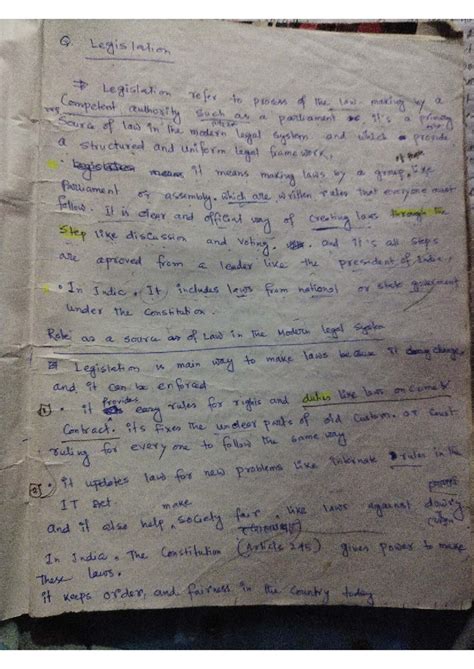 Q. Legislation
⇒ Legislation refer to process of the law making by a
competent authority such as a parliament it's a primary
source of law in the modern legal system and which provide
a structured and uniform legal framework.
it means making laws by a group, like
Parliament or assembly. which are written rules that everyone must
follow. It is clear and official way of creating laws through the
step like discussion and voting. and it's all steps
are aproved from a leader like the president of India.
• In India. It includes laws from national or state goverment
under the Constitution.
Role as a source of Law in the Modern legal System
Legislation is main way to make laws because it change
and it can be enforced
1 • it provides easy rules for rights and duties like laws on crime &
Contract. its fixes the unclear parts of old custom. or court
ruling for every one to follow the same way
2 • it updates law for new problems like internate rules in the
IT act make
and it also help society fair, like laws against dowry
In India. The Constitution (Article 245) gives power to make
These laws.
it keeps order, and fairness in the country today